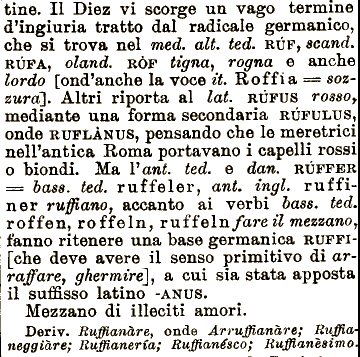 tine. Il Diez vi scorge un vago termine
d'ingiuria tratto dal radicale germanico,
che si trova nel med. alt. ted. RÚF, scand.
RÚFA, oland. RÒF tigna, rogna e anche
lordo [ond'anche la voce it. Roffia = soz-
zura]. Altri riporta al lat. RÚFUS rosso,
mediante una forma secondaria RÚFULUS,
onde RUFLÀNUS, pensando che le meretrici
nell'antica Roma portavano i capelli rossi
o biondi. Ma l'ant. ted. e dan. RÚFFER
= bass. ted. ruffeler, ant. ingl. ruffi-
ner ruffiano, accanto ai verbi bass. ted.
roffen, roffeln, ruffeln fare il mezzano,
fanno ritenere una base germanica RUFFI-
[che deve avere il senso primitivo di ar-
raffare, ghermire], a cui sia stata apposta
il suffisso latino -ANUS.
Mezzano di illeciti amori.
Deriv. Ruffianàre, onde Arruffianàre; Ruffia-
neggiàre; Ruffianería; Ruffianésco; Ruffianèsimo.